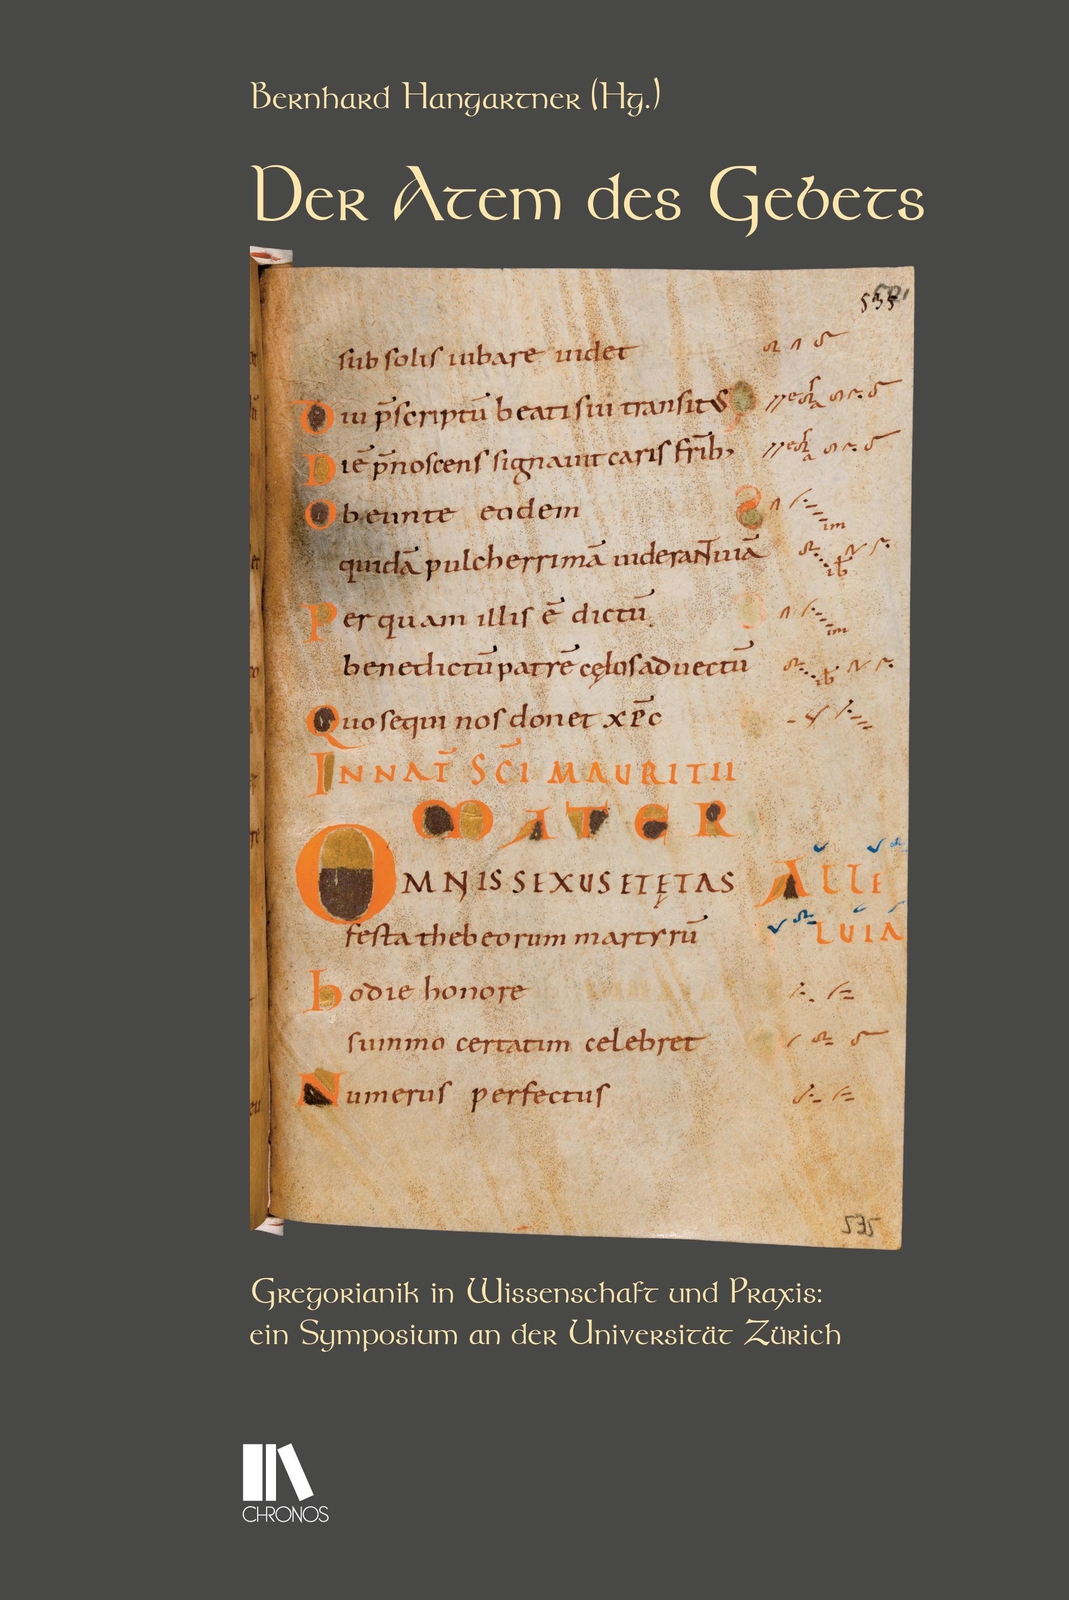 Bernhard Hangartner (Hg.)
Der Atem des Gebets
535
sub solis iubare uidet
Diu p̄scriptū beati sui transitus
Diē p̄noscens signauit caris frīb;
Obeunte eodem
im
quidā pulcherrimā uiderant uiā
ib
Per quam illis ē dictū
im
benedictū patrē cęlos aduectū
ib
Quo sequi nos donet xp̄c
IN NAT̄ SC̄I MAURITII
MATER
OMNIS SEXUS ET ĘTAS ALLE
festa thebeorum martyrū LUIA
hodie honore
summo certatim celebret
Numerus perfectus
535
Gregorianik in Wissenschaft und Praxis:
ein Symposium an der Universität Zürich
CHRONOS